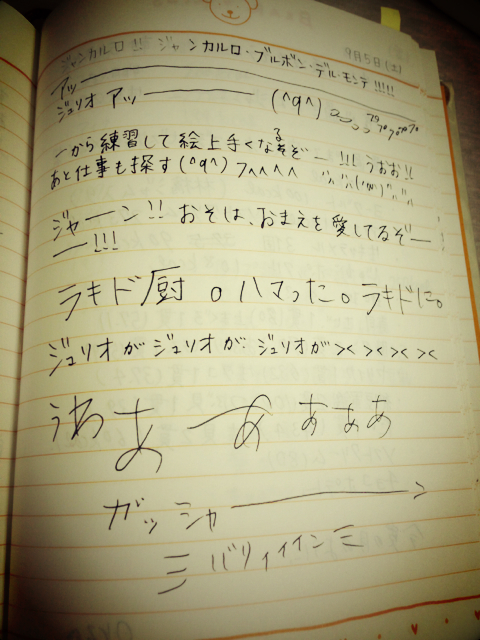 9月5日(土)
ジャンカルロ!! ジャンカルロ・ブルボン・デル・モンテ!!!!
アッ―――――
ジュリオ アッ――――― (^q^)
一から練習して絵上手くなるぞー!!! うおお!!
あと仕事も探す(^q^)フヘヘヘヘ
ジャーン!! おそは、おまえを愛してるぞー!
ー!!!
ラキド厨 。ハマった。ラキドに。
ジュリオがジュリオが ジュリオが><><><><
うわあーあ ああぁ
ガッシャ―――――>
三 バリィイイン 三